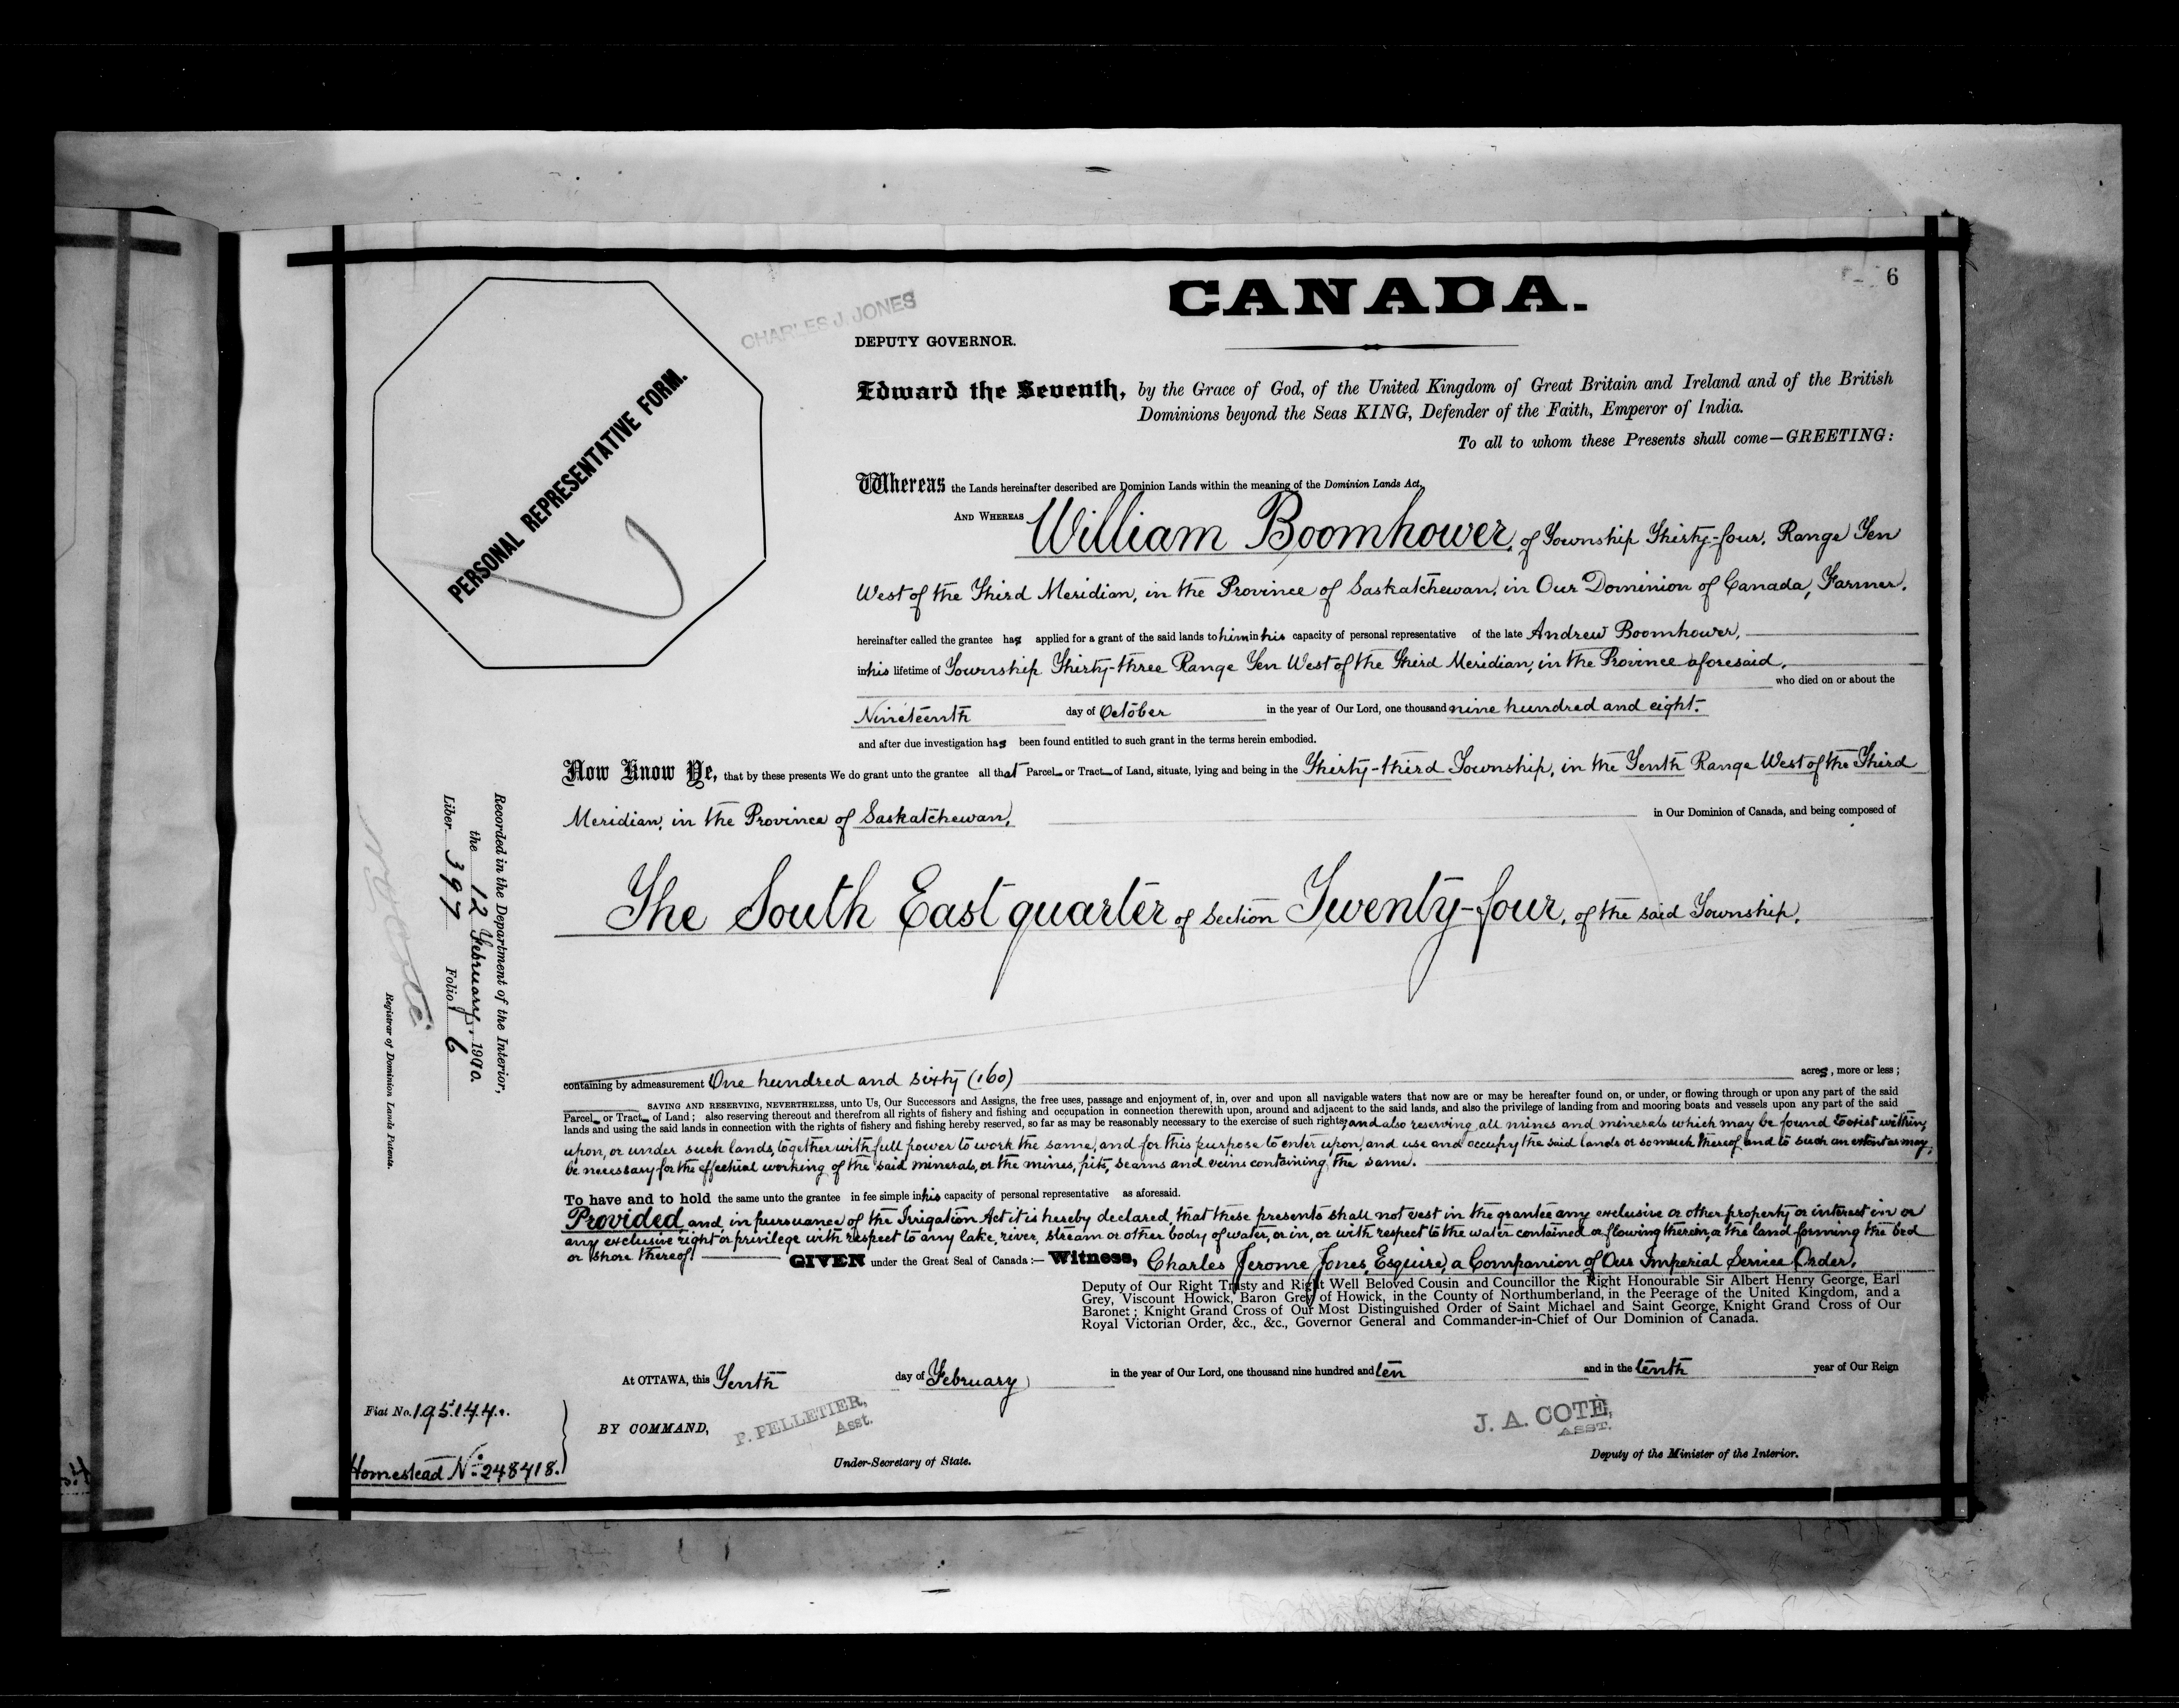 6
CANADA.
CHARLES J. JONES
DEPUTY GOVERNOR.
Edward the Seventh, by the Grace of God, of the United Kingdom of Great Britain and Ireland and of the British
Dominions beyond the Seas KING, Defender of the Faith, Emperor of India.
To all to whom these Presents shall come—GREETING:
PERSONAL REPRESENTATIVE FORM.
Whereas the Lands hereinafter described are Dominion Lands within the meaning of the Dominion Lands Act,
AND WHEREAS William Boomhower, of Township Thirty-four, Range Ten
West of the Third Meridian, in the Province of Saskatchewan, in Our Dominion of Canada, Farmer,
hereinafter called the grantee has applied for a grant of the said lands to him in his capacity of personal representative of the late Andrew Boomhower,
in his lifetime of Township Thirty-three Range Ten West of the Third Meridian, in the Province aforesaid,
who died on or about the
Nineteenth day of October in the year of Our Lord, one thousand nine hundred and eight.
and after due investigation has been found entitled to such grant in the terms herein embodied.
Now Know Ye, that by these presents We do grant unto the grantee all that Parcel or Tract of Land, situate, lying and being in the Thirty-third Township, in the Tenth Range West of the Third
Meridian, in the Province of Saskatchewan, in Our Dominion of Canada, and being composed of
The South East quarter of Section Twenty-four, of the said Township.
containing by admeasurement One hundred and sixty (160) acres, more or less;
SAVING AND RESERVING, NEVERTHELESS, unto Us, Our Successors and Assigns, the free uses, passage and enjoyment of, in, over and upon all navigable waters that now are or may be hereafter found on, or under, or flowing through or upon any part of the said
Parcel or Tract of Land; also reserving thereout and therefrom all rights of fishery and fishing and occupation in connection therewith upon, around and adjacent to the said lands, and also the privilege of landing from and mooring boats and vessels upon any part of the said
lands and using the said lands in connection with the rights of fishery and fishing hereby reserved, so far as may be reasonably necessary to the exercise of such rights; and also reserving all mines and minerals which may be found to exist within,
upon, or under such lands, together with full power to work the same, and for this purpose to enter upon, and use and occupy the said lands or so much thereof and to such an extent as may
be necessary for the effectual working of the said minerals, or the mines, pits, seams and veins containing the same.
To have and to hold the same unto the grantee in fee simple in his capacity of personal representative as aforesaid.
Provided and in pursuance of the Irrigation Act it is hereby declared, that these presents shall not vest in the grantee any exclusive or other property or interest in or
any exclusive right or privilege with respect to any lake, river, stream or other body of water, or in, or with respect to the water contained or flowing therein, or the land forming the bed
or shore thereof. GIVEN under the Great Seal of Canada:— Witness, Charles Jerome Jones, Esquire, a Companion of Our Imperial Service Order,
Deputy of Our Right Trusty and Right Well Beloved Cousin and Councillor the Right Honourable Sir Albert Henry George, Earl
Grey, Viscount Howick, Baron Grey of Howick, in the County of Northumberland, in the Peerage of the United Kingdom, and a
Baronet; Knight Grand Cross of Our Most Distinguished Order of Saint Michael and Saint George, Knight Grand Cross of Our
Royal Victorian Order, &c., &c., Governor General and Commander-in-Chief of Our Dominion of Canada.
At OTTAWA, this Tenth day of February in the year of Our Lord, one thousand nine hundred and ten and in the tenth year of Our Reign
BY COMMAND,
P. PELLETIER,
Asst.
Under-Secretary of State.
J. A. COTÉ,
ASST.
Deputy of the Minister of the Interior.
Fiat No. 195144.
Homestead No. 248418.
Recorded in the Department of the Interior,
the 12 February, 1910.
Liber 397 Folio 6
Registrar of Dominion Lands Patents.